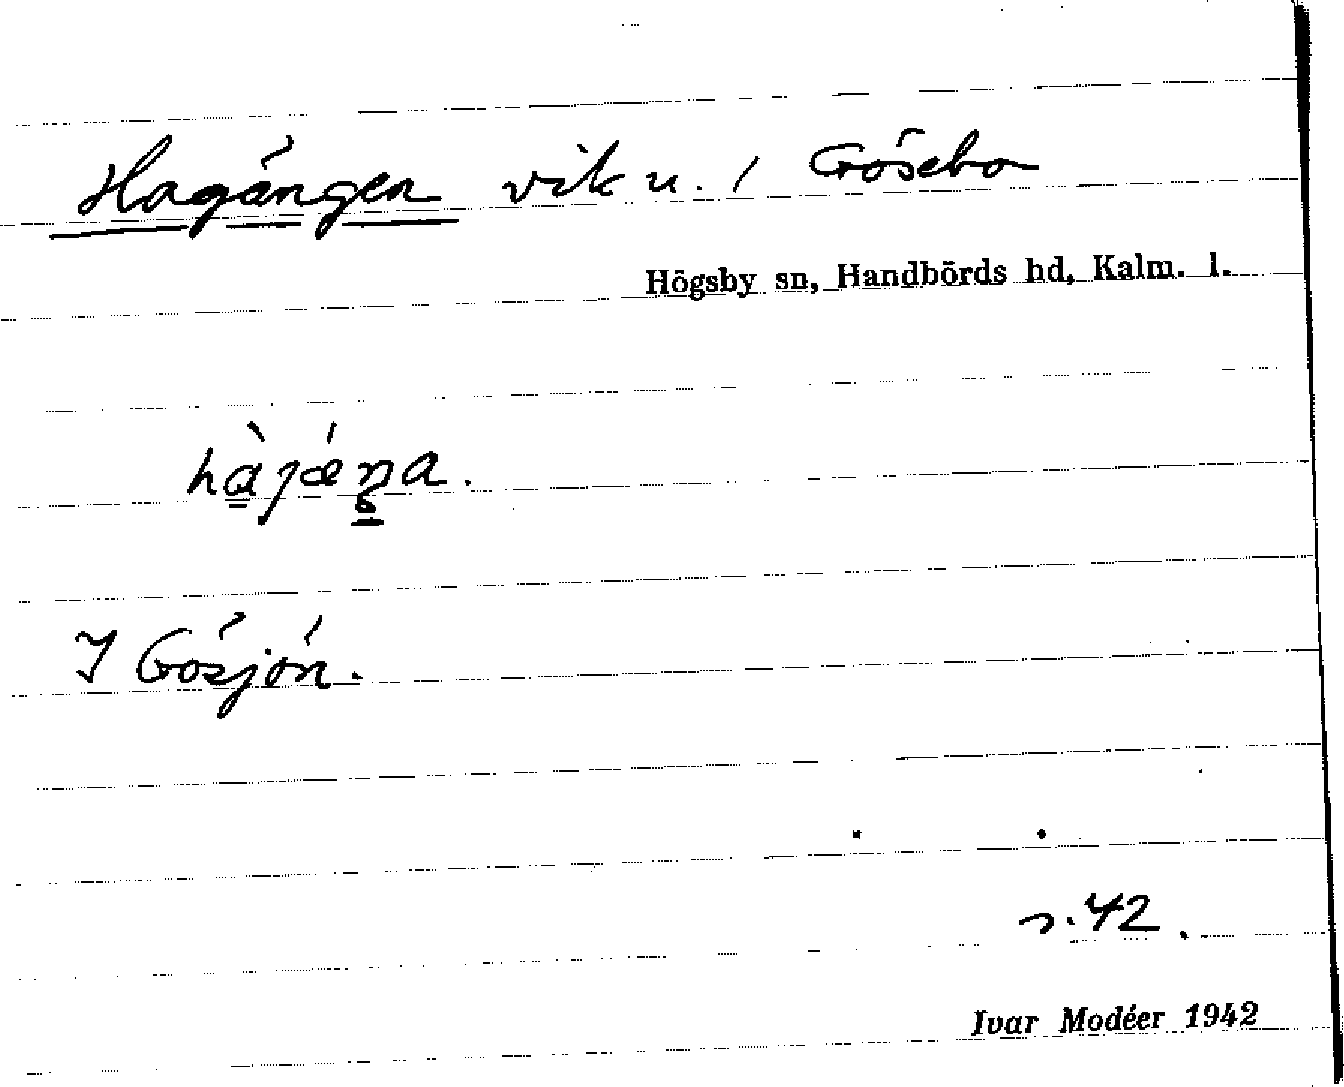 Hagängen vik u. / Gösebo
Högsby sn, Handbörds hd, Kalm. l.
I Gösjön.
s. 42.
Ivar Modéer 1942